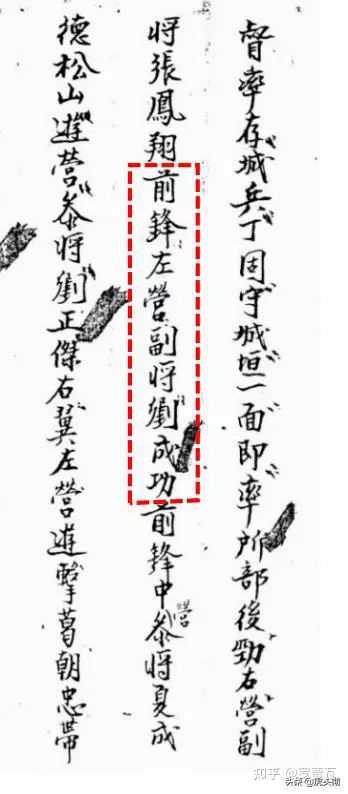 督率存城兵丁固守城垣一面即率所部後勁右營副
将張鳳翔前鋒左營副将劉成功前鋒中營叅将夏成
德松山遊營叅将劉正傑右翼左營遊擊葛朝忠帶
知乎
头条 @虎头榜